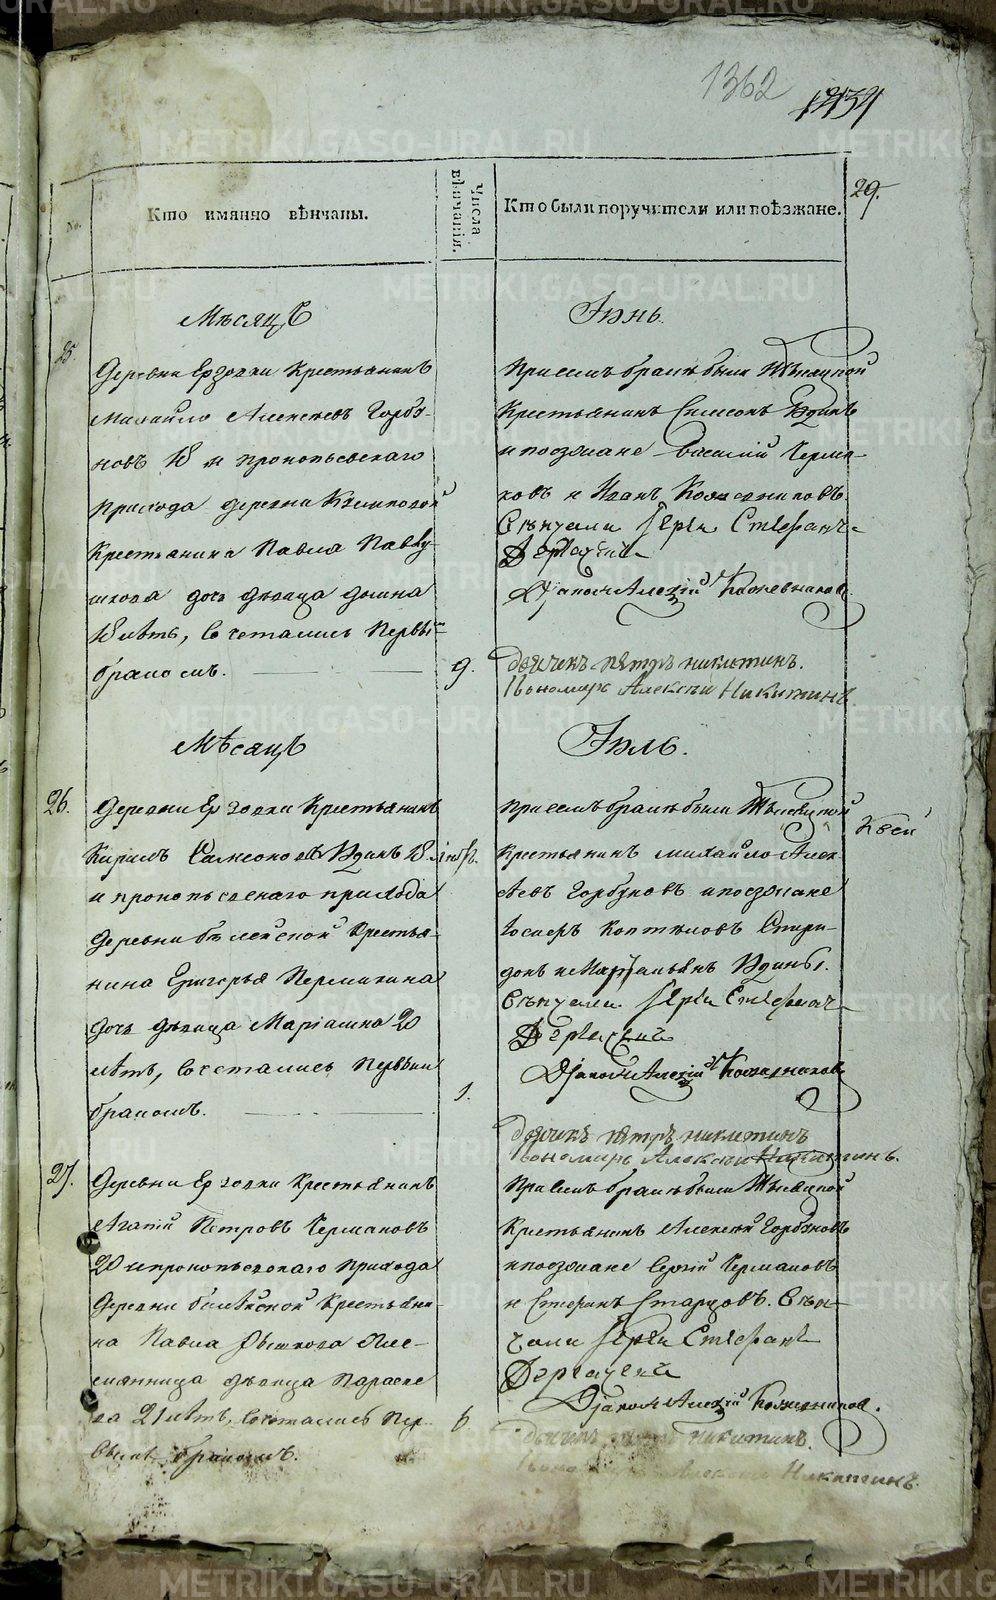 METRIKI.GASO-URAL.RU
1362
1434
29.
№.
Кто имянно вѣнчаны.
Числа вѣнчанія.
Кто были поручители или поѣзжане.
Мѣсяцъ
Іюнь.
25
Деревни Ерзовки Крестьянинъ
Михайло Алексѣевъ Горбу-
новъ 18 и прокопьевскаго
прихода деревни
Крестьянина Павла
дочь дѣвица Домна
18 лѣтъ, сочетались первымъ
бракомъ.
9.
При семъ бракѣ были
Крестьянинъ Симеонъ Юдинъ
и поезжане Василий Черма-
ковъ и Иванъ Кожевниковъ
Вѣнчали Іерей Стефанъ
Дергачевъ
Діаконъ Алексій Кожевниковъ
дьячекъ пѣтръ никитинъ.
Пономарь Алексѣй Никитинъ
Мѣсяцъ
Іюль.
26.
Деревни Ерзовки Крестьянинъ
Кирилъ Самсоновъ Юдинъ 18 лѣтъ.
и прокопьевскаго прихода
деревни Крестья-
нина Григорья Пермикина
дочь дѣвица Маріамна 20
лѣтъ, сочетались первымъ
бракомъ.
1.
При семъ бракѣ были
Крестьянинъ михайло Алек-
ѣевъ Горбуновъ и поезжане
Іосифъ Коптѣловъ Спири-
донъ и Мартемьянъ Юдины.
Вѣнчали Іерей Стефанъ
Дергачевъ
Діаконъ Алексій Кожевниковъ
дьячекъ пѣтръ никитинъ
Пономарь Алексѣи Никитинъ.
27.
Деревни Ерзовки Крестьянинъ
Агапій Петровъ Чермаковъ
20 и прокопьевскаго прихода
деревни Крестьяни-
на Павла племянница
дѣвица Параске-
ва 21 лѣтъ, сочетались пер-
вымъ бракомъ.
6
При семъ бракѣ были
Крестьянинъ Алексѣй Горбуновъ
и поезжане Сергій Чермаковъ
и Стефанъ Старцовъ. Вѣн-
чали Іерей Стефанъ
Дергачевъ
Діаконъ Алексій Кожевниковъ.
дьячекъ пѣтръ никитинъ.
Пономарь Алексѣи Никитинъ.